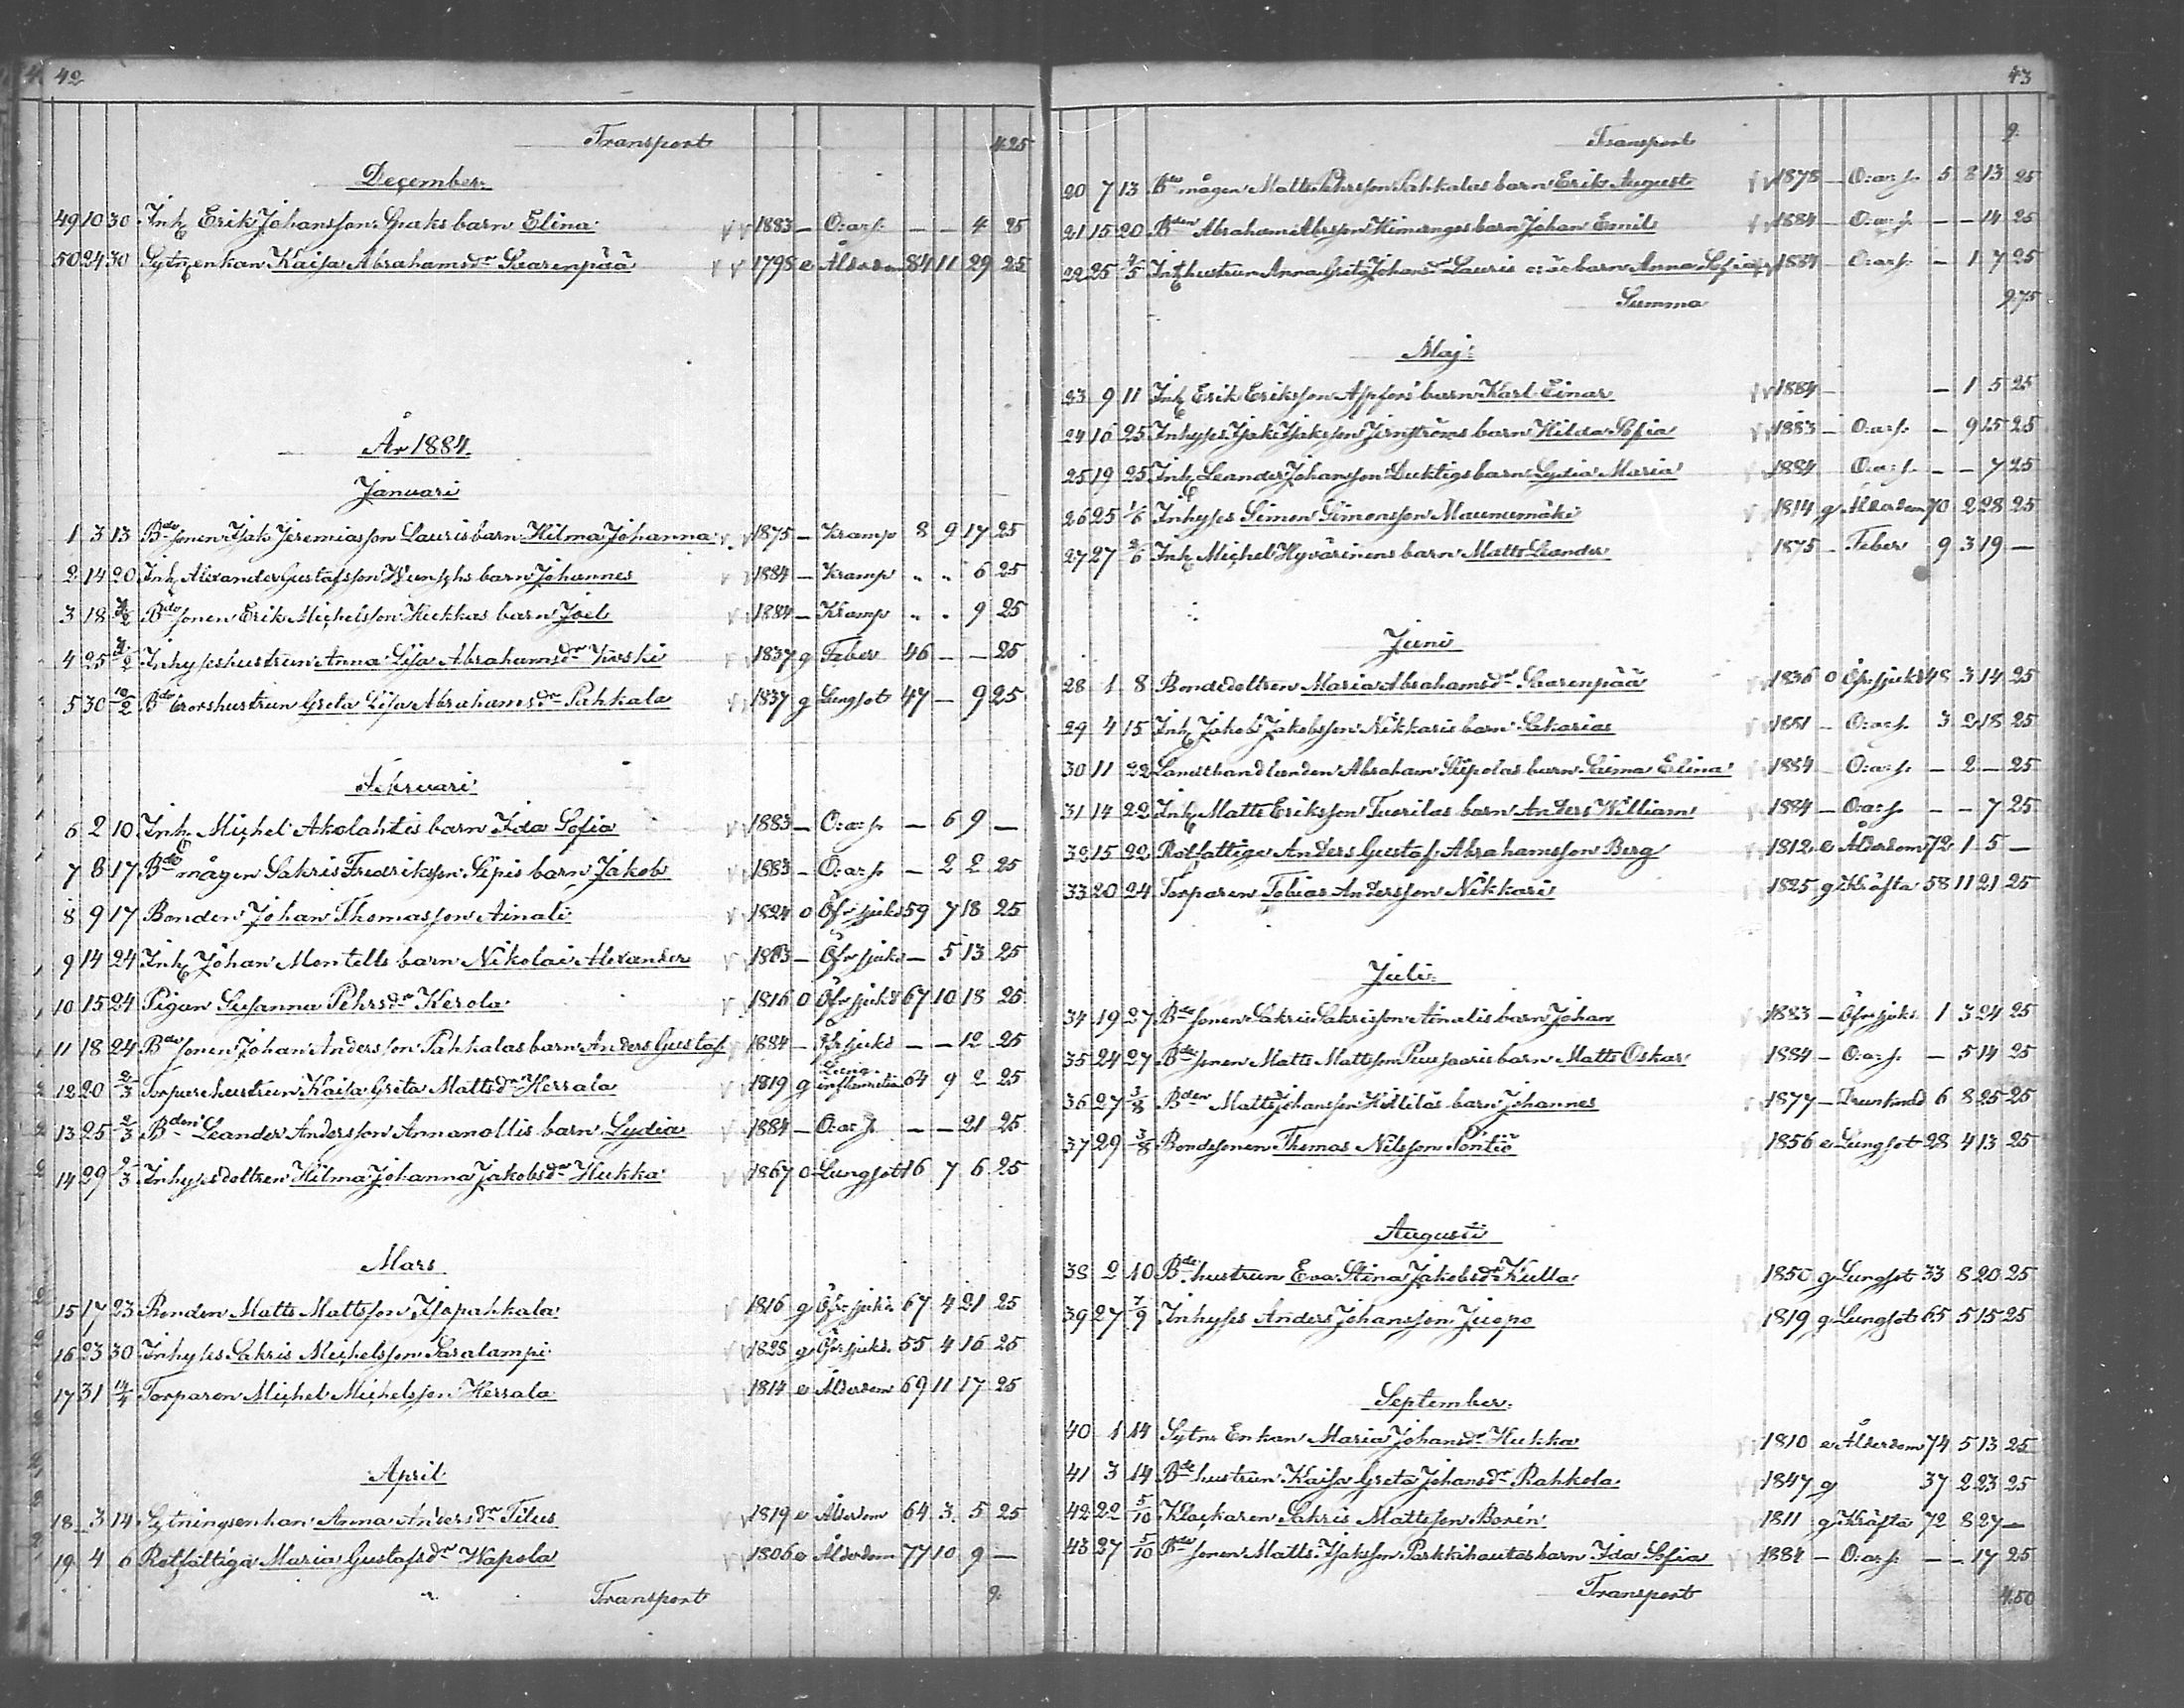 42
Transport 4.25
December.
49 10 30 Inh Erik Johansson Spaks barn Elina 1883 – O:ar s. – – 4 25
50 24 30 Sytn enkan Kaisa Abrahamsdr Saarenpää 1798 e Ålderdom 84 11 29 25
År 1884.
Januari
1 3 13 Bdesonen Isak Jeremiasson Lauris barn Hilma Johanna 1875 – Kramp 8 9 17 25
2 14 20 Inh Alexander Gustafsson barn Johannes 1884 – Kramp „ „ 6 25
3 18 3/2 Bdesonen Erik Michelsson Hukkas barn Joel 1884 – Kramp „ „ 9 25
4 25 3/2 Inhyseshustrun Anna Lisa Abrahamsdr Koski 1837 g Feber 46 – – 25
5 30 10/2 Bdebrorshustrun Greta Lisa Abrahamsdr Pahkala 1837 g Lungsot 47 – 9 25
Februari
6 2 10 Inh Michel Akolahtis barn Ida Sofia 1883 – O:ar s. – 6 9 –
7 8 17 Bdemågen Sakris Fredriksson Sipis barn Jakob 1883 – O:ar s. – 2 2 25
8 9 17 Bonden Johan Thomasson Ainali 1824 o Öfr sjukd 59 7 18 25
9 14 24 Inh Johan Montells barn Nikolai Alexander 1883 – Öfr sjukd – 5 13 25
10 15 24 Pigan Susanna Pehrsdr Kerola 1816 o Öfr sjukd 67 10 18 25
11 18 24 Bdesonen Johan Andersson Pahkalas barn Anders Gustaf 1884 – Öfr sjukd – – 12 25
12 20 2/3 Torparehustrun Kaisa Greta Mattsdr Herrala 1819 g Lung-inflamation 64 9 2 25
13 25 2/3 Bden Leander Andersson Annanollis barn Lydia 1884 – O:ar s. – – 21 25
14 29 2/3 Inhysesdottren Hilma Johanna Jakobsdr Hukka 1867 o Lungsot 16 7 6 25
Mars
15 17 23 Bonden Matts Mattsson Isopahkala 1816 g Öfr sjukd. 67 4 21 25
16 23 30 Inhyses Sakris Michelsson Saralampi 1828 g Öfr sjukd. 55 4 16 25
17 31 14/4 Torparen Michel Michelsson Herrala 1814 e Ålderdom 69 11 17 25
April
18 3 14 Sytningsenkan Anna Andersdr Tilus 1819 e Ålderdom 64 3 5 25
19 4 6 Rotfattiga Maria Gustafsdr Wapola 1806 e Ålderdom 77 10 9 –
Transport 9.
43
Transport 9.
20 7 13 Bdemågen Matts Pehrsson Pahkalas barn Erik August 1878 – O:ar s. 5 8 13 25
21 15 20 Bden Abraham Abrsson Himangos barn Johan Emil 1884 – O:ar s. – – 14 25
22 25 4/5 Inhhustrun Anna Greta Johansdr Lauris o:ä: barn Anna Sofia 1884 – O:ar s. – 1 7 25
Summa 9.75
Maj:
23 9 11 Inh Erik Eriksson Aspfors barn Karl Einar 1884 – – 1 5 25
24 16 25 Inhyses Isak Isaksson Jernströms barn Hilda Sofia 1883 – O:ar s. – 9 15 25
25 19 25 Inh Leander Johansson Duktigs barn Lydia Maria 1884 O:ar s. – – 7 25
26 25 1/6 Inhyses Simon Simonsson Maunumäki 1814 g Ålderdom 70 2 28 25
27 27 2/6 Inh Michel Hyvärinens barn Matts Leander 1875 – Feber 9 3 19 –
Juni
28 1 8 Bondedottren Maria Abrahamsdr Saarenpää 1836 o Öfr. sjukd 48 3 14 25
29 4 15 Inh Jakob Jakobsson Nikkaris barn Sakarias 1881 – O:ar s. 3 2 18 25
30 11 22 Landthandlanden Abraham Siipolas barn Saima Elina 1884 – O:ar s. – 2 – 25
31 14 22 Inh Matts Eriksson Tuorilas barn Anders William 1884 – O:ar s. – – 7 25
32 15 22 Rotfattige Anders Gustaf Abrahamsson Berg 1812 e Ålderdom 72 1 5 –
33 20 24 Torparen Tobias Andersson Nikkari 1825 g Kräfta 58 11 21 25
Juli.
34 19 27 Bdesonen Sakris Sakrisson Ainalis barn Johan 1883 – Öfr sjukd. 1 3 24 25
35 24 27 Bdesonen Matts Mattsson Puusaaris barn Matts Oskar 1884 – O:ar s. – 5 14 25
36 27 3/8 Bden Matts Johansson Hilliläs barn Johannes 1877 – Drunknad 6 8 25 25
37 29 3/8 Bondsonen Thomas Nilsson Pöntiö 1856 e Lungsot 28 4 13 25
Augusti
38 2 10 Bdehustrun Eva Stina Jakobsdr Kulla 1850 g Lungsot 33 8 20 25
39 27 7/9 Inhyses Anders Johansson Juopo 1819 g Lungsot 65 5 15 25
September.
40 1 14 Sytn: Enkan Maria Johansdr Hukka 1810 e Ålderdom 74 5 13 25
41 3 14 Bdehustrun Kaisa Greta Johansdr Rahkola 1847 g 37 2 23 25
42 22 5/10 Klockaren Sakris Mattsson Borén 1811 g Kräfta 72 8 27 –
43 27 5/10 Bdesonen Matts Isaksson Parkkihautas barn Ida Sofia 1884 – O:ar s. – – 17 25
Transport 4.50